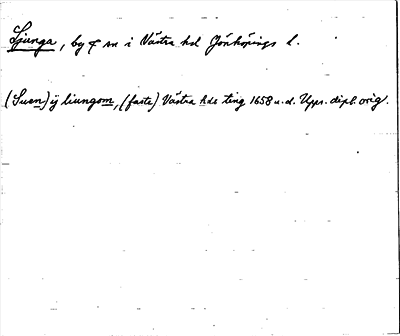 Ljunga, by & sn i Västra hd Jönköpings l.
(Suen) ij liungom, (faste) Västra hds ting 1658 u.d. Upps. dipl. orig.